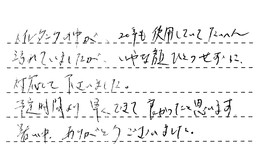 トイレタンクの中が、20年も使用していてたいへん
汚れていましたが、いやな顔ひとつせずに、
対応して下さいました。
予定時間より早くできて良かったと思います
暑い中、ありがとうございました。